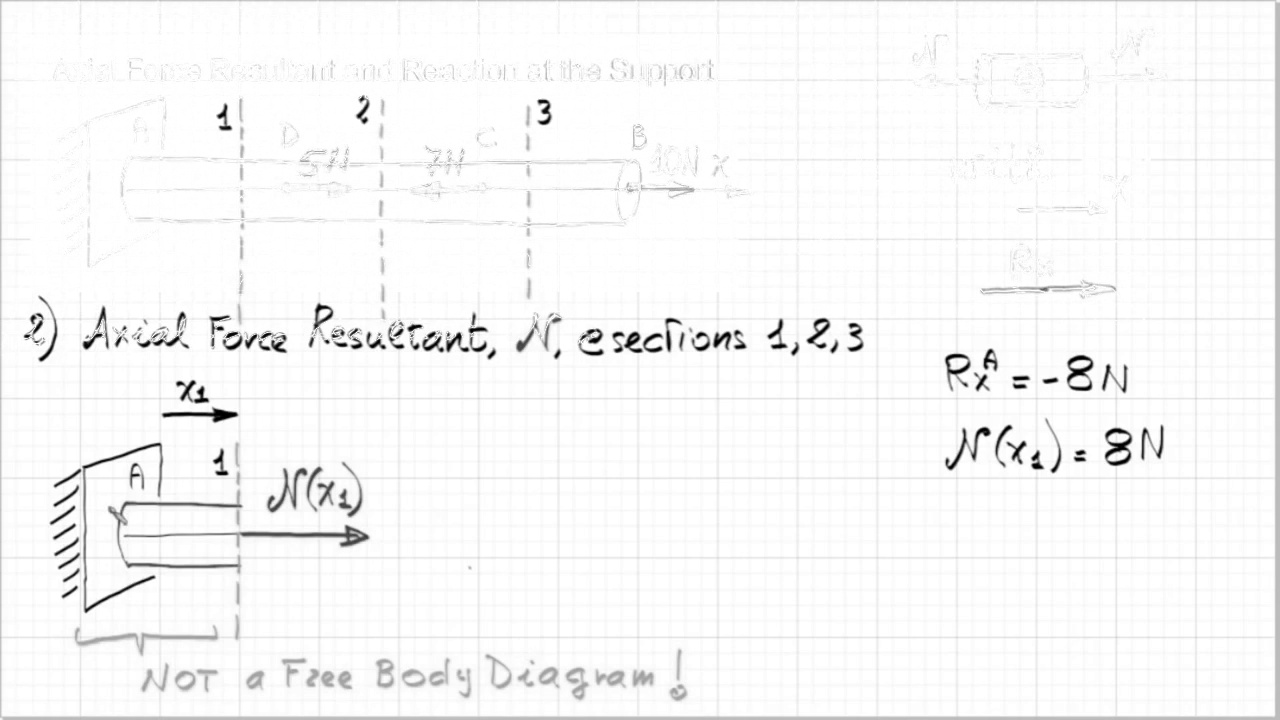 Axial Force Resultant and Reaction at the Support
N N
1 2 3
A D C B
5N 7N 10N x
x
Rx
2) Axial Force Resultant, N, @ sections 1, 2, 3
RxA = -8N
x1
N(x1) = 8N
A 1 N(x1)
NOT a Free Body Diagram!